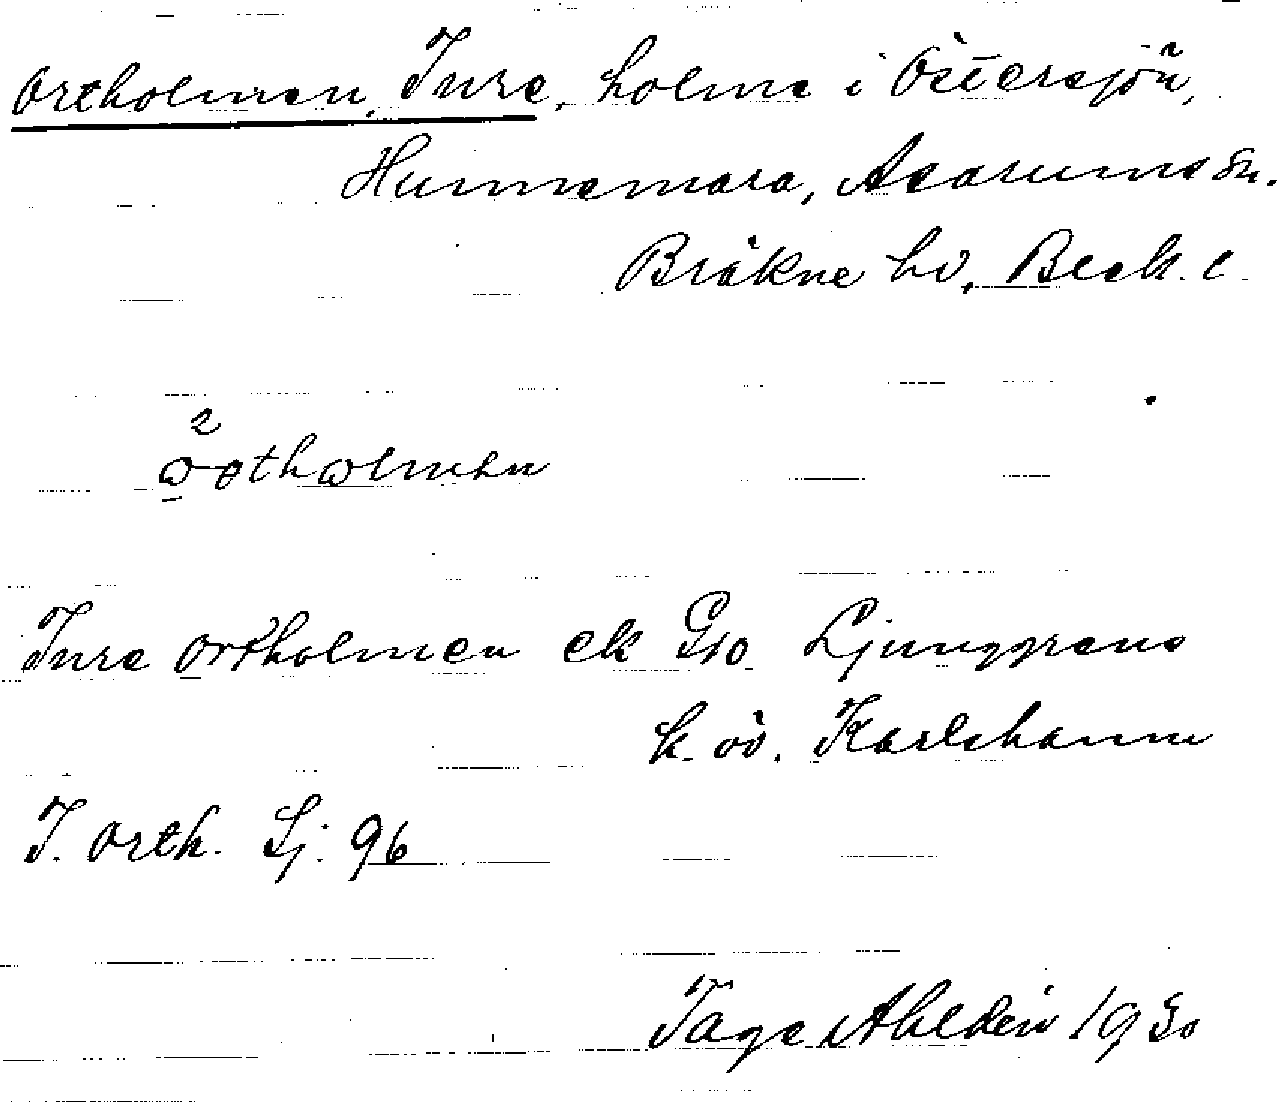 Ortholmen, Inre, holme i Östersjön,
Hunnemara, Asarums sn.
Bräkne hd, Blek. l.
Inre Ortholmen ek G10 Ljunggrens
k. öv. Karlshamn
I. Orth. Lj. 96
Tage Ahldén 1930